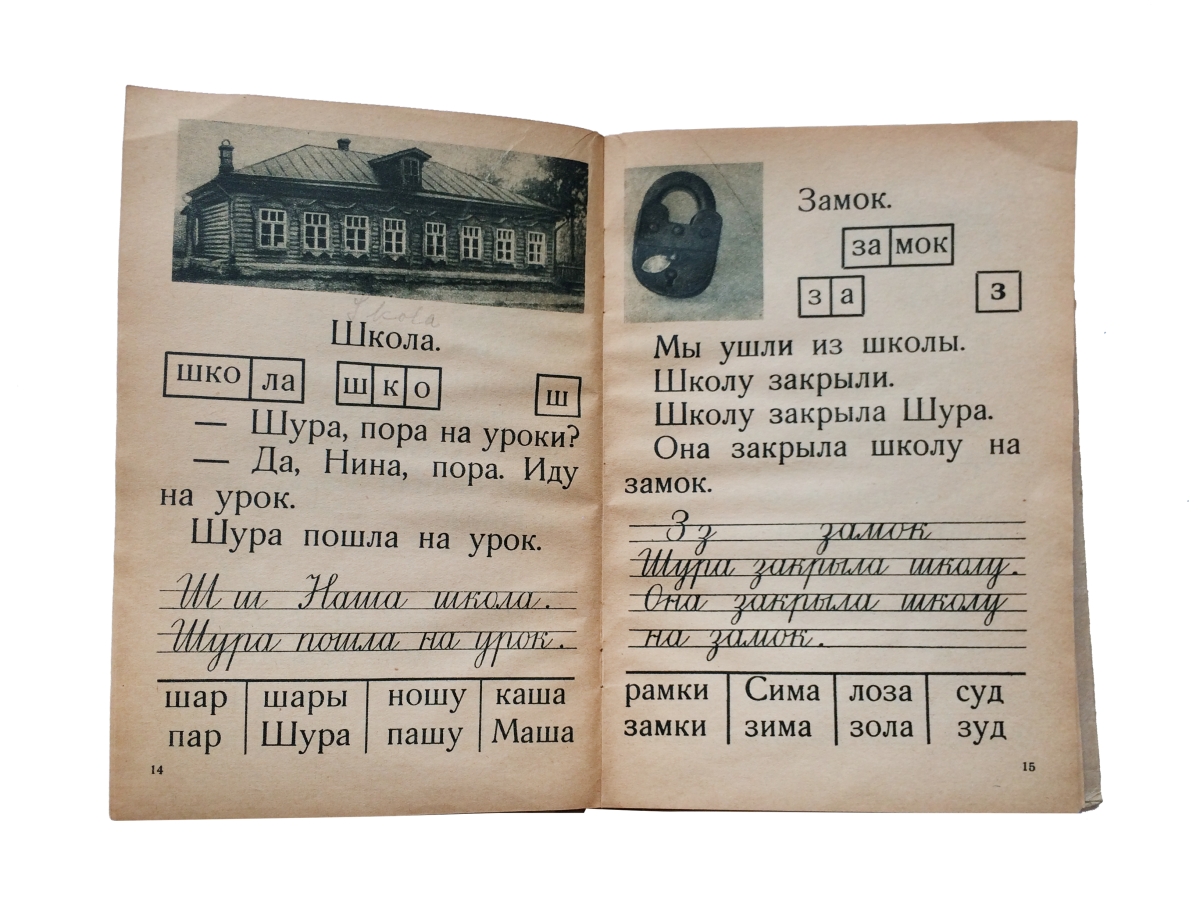 Skola
Школа.
шко ла ш к о ш
— Шура, пора на уроки?
— Да, Нина, пора. Иду
на урок.
Шура пошла на урок.
Ш ш Наша школа.
Шура пошла на урок.
шар шары ношу каша
пар Шура пашу Маша
14
Замок.
за мок
з а з
Мы ушли из школы.
Школу закрыли.
Школу закрыла Шура.
Она закрыла школу на
замок.
З з замок
Шура закрыла школу.
Она закрыла школу
на замок.
рамки Сима лоза суд
замки зима зола зуд
15